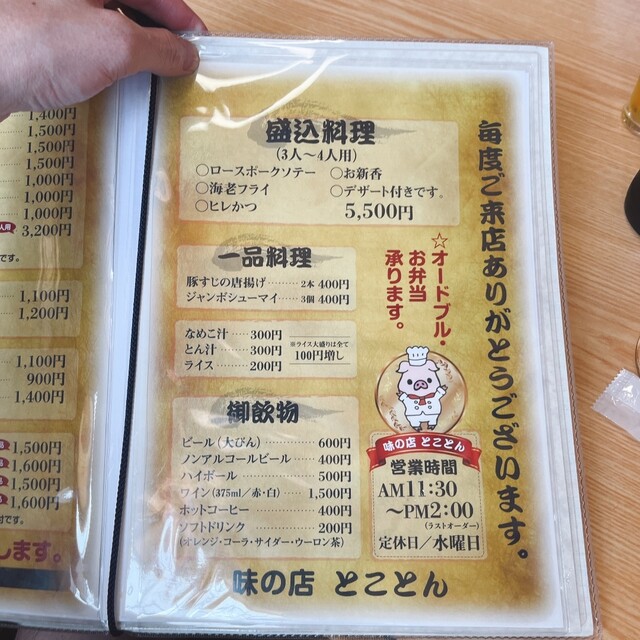 盛込料理
(3人～4人用)
○ロースポークソテー ○お新香
○海老フライ ○デザート付きです。
○ヒレかつ 5,500円
一品料理
豚すじの唐揚げ……2本 400円
ジャンボシューマイ……3個 400円
なめこ汁……300円
とん汁……300円
ライス……200円
※ライス大盛りは全て
100円増し
御飲物
ビール(大びん)……600円
ノンアルコールビール……400円
ハイボール……500円
ワイン(375ml／赤・白)……1,500円
ホットコーヒー……400円
ソフトドリンク……200円
(オレンジ・コーラ・サイダー・ウーロン茶)
☆オードブル・
お弁当
承ります。
毎度ご来店ありがとうございます。
味の店 とことん
営業時間
AM11:30
～PM2:00
(ラストオーダー)
定休日／水曜日
味の店 とことん
1,400円
1,500円
1,500円
1,500円
1,000円
1,000円
1,000円
人用 3,200円
です。
1,100円
1,200円
1,100円
900円
1,400円
1,500円
1,600円
1,500円
1,600円
付です。
します。